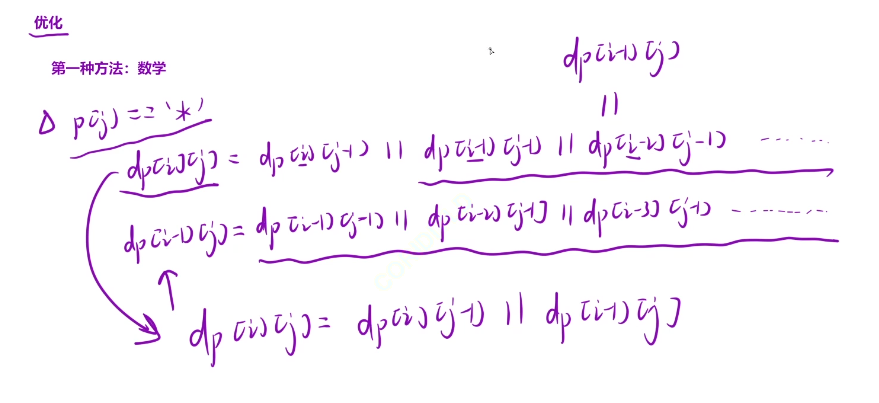 优化
第一种方法：数学
dp[i-1][j]
||
△ p[j] == '*'
dp[i][j] = dp[i][j-1] || dp[i-1][j-1] || dp[i-2][j-1] ------
dp[i-1][j] = dp[i-1][j-1] || dp[i-2][j-1] || dp[i-3][j-1] ------
dp[i][j] = dp[i][j-1] || dp[i-1][j]